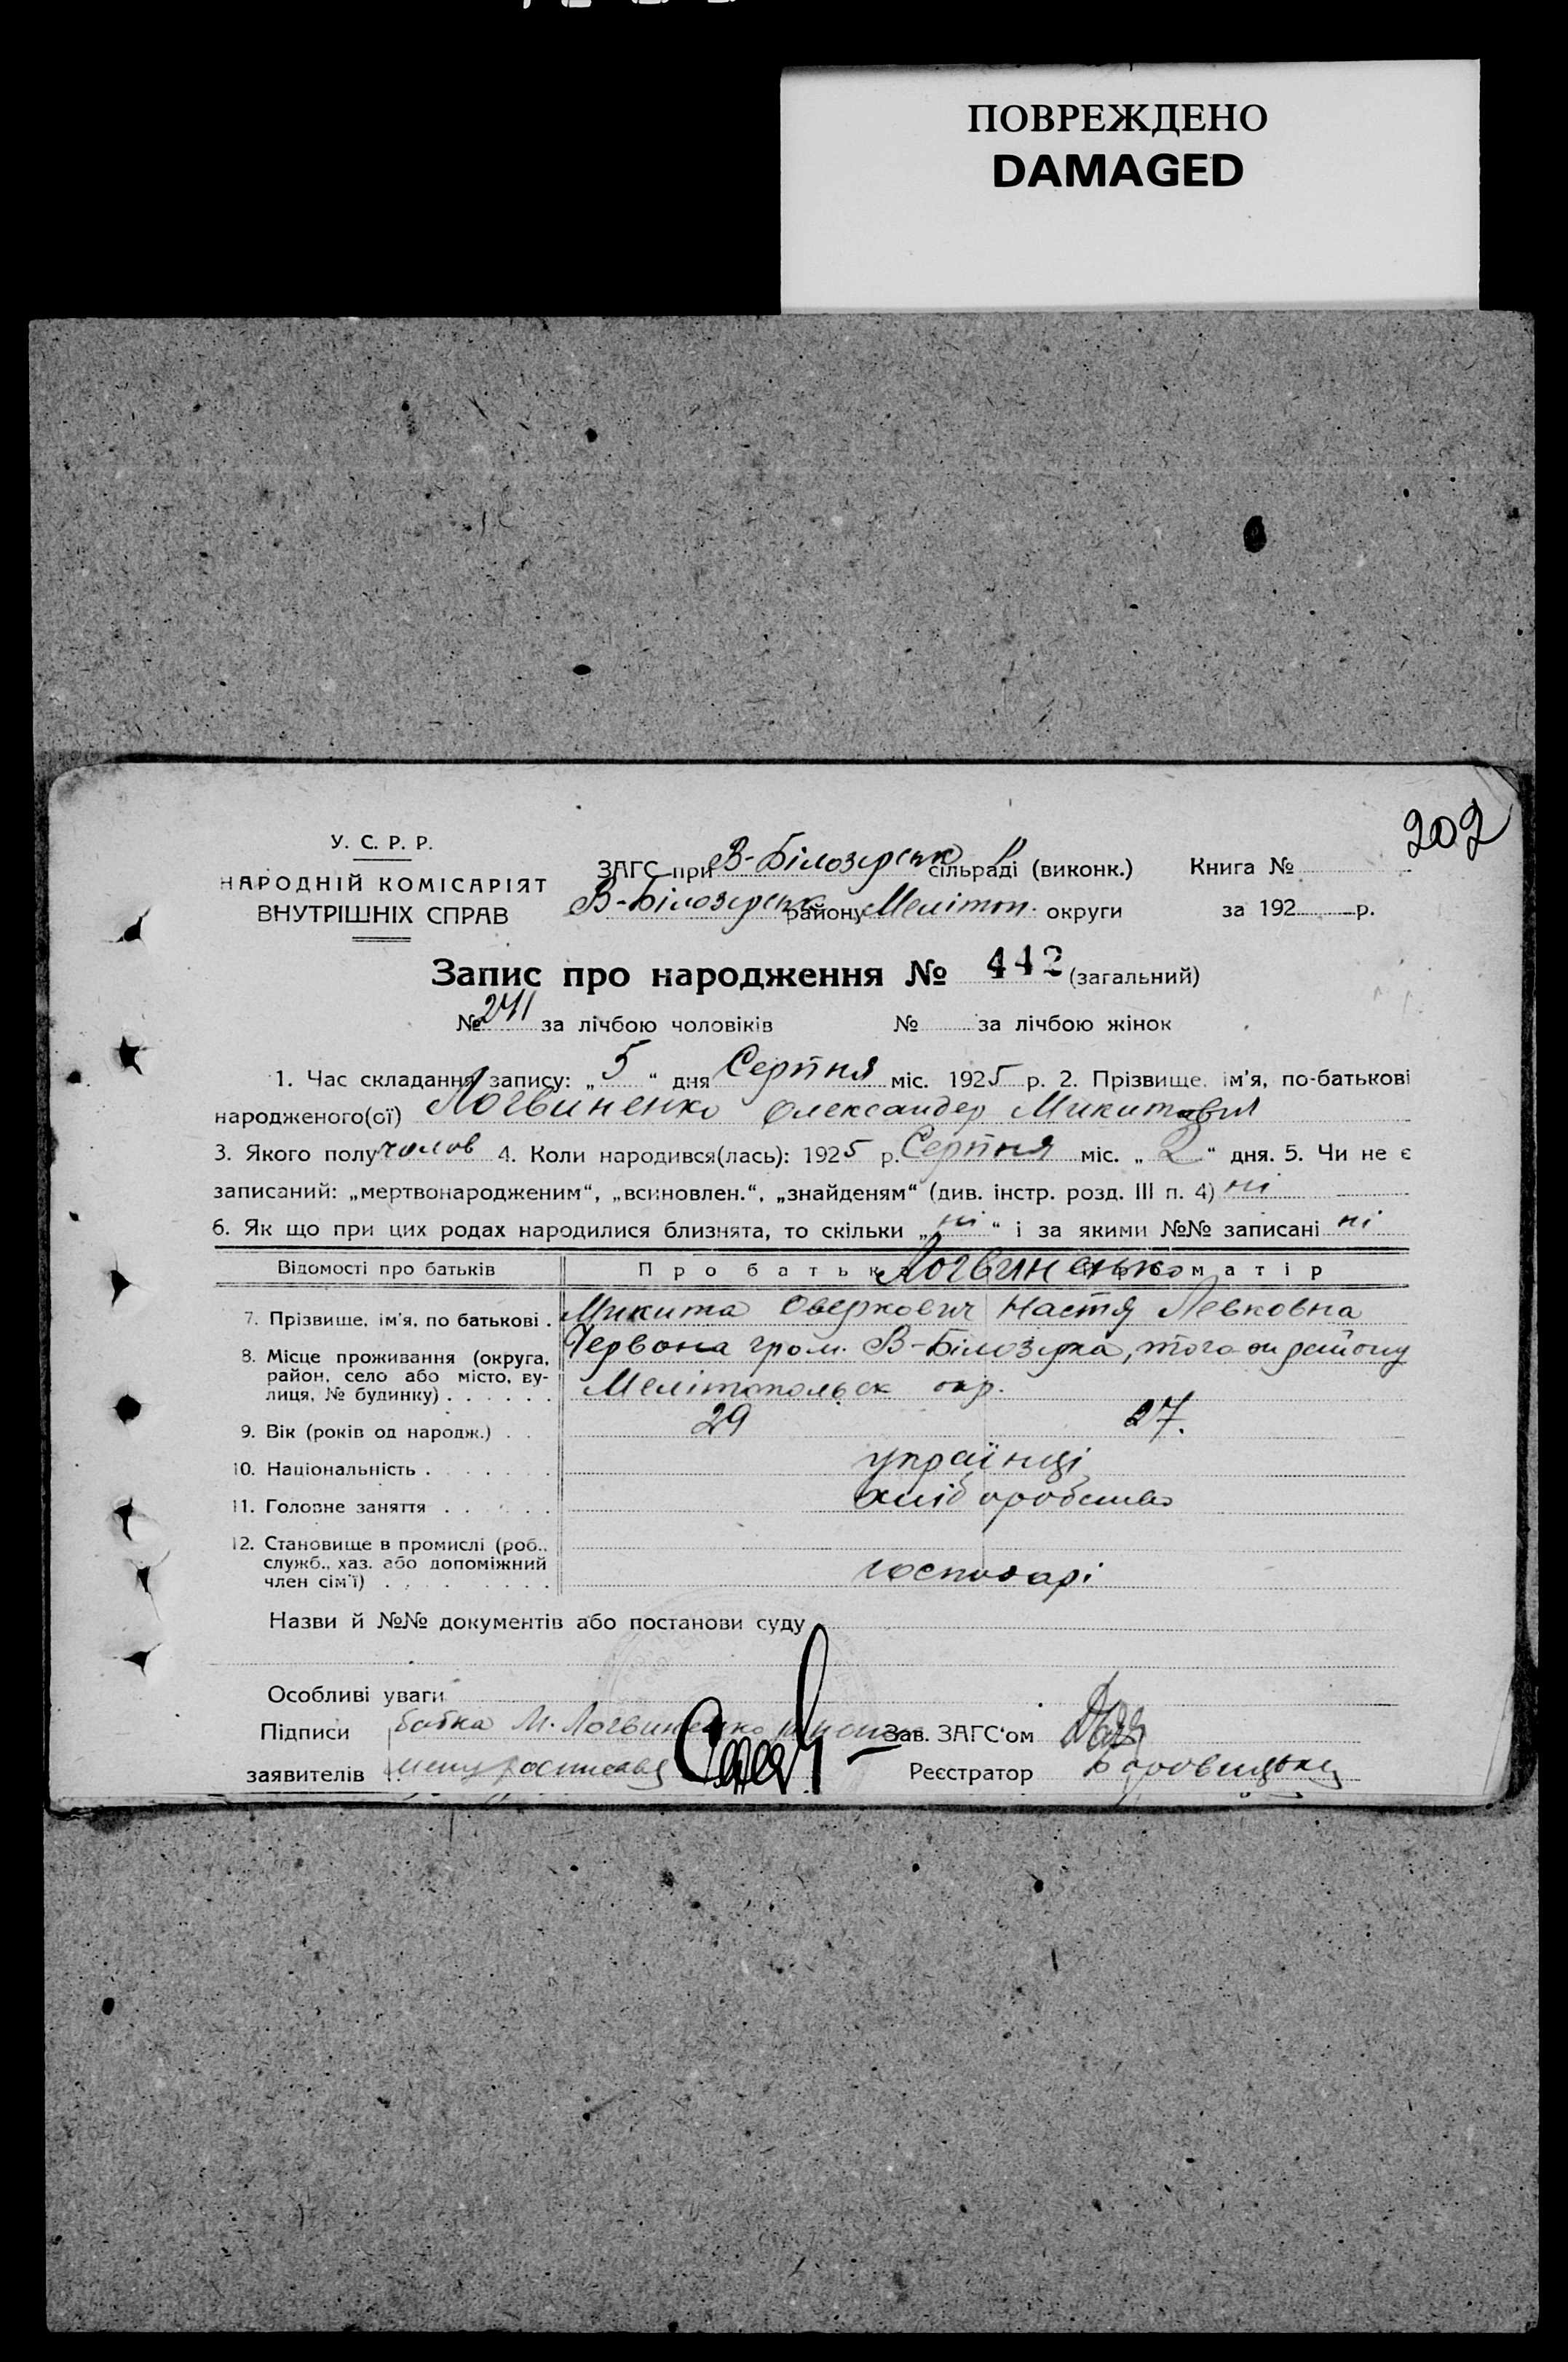 ПОВРЕЖДЕНО
DAMAGED
202
У. С. Р. Р.
НАРОДНІЙ КОМІСАРІЯТ
ВНУТРІШНІХ СПРАВ
ЗАГС при В-Білозерськ сільраді (виконк.)
В-Білозерськ району Мелітоп. округи
Книга №
за 192 р.
Запис про народження № 442 (загальний)
№ 241 за лічбою чоловіків № за лічбою жінок
1. Час складання запису: „5“ дня Серпня міс. 1925 р. 2. Прізвище, ім'я, по-батькові
народженого(ої) Логвиненко Олександер Микитович
3. Якого полу чолов 4. Коли народився(лась): 1925 р. Серпня міс. „2“ дня. 5. Чи не є
записаний: „мертвонародженим“, „всиновлен.“, „знайденям“ (див. інстр. розд. III п. 4) ні
6. Як що при цих родах народилися близнята, то скільки „ні“ і за якими №№ записані ні
Відомості про батьків Про батька Логвиненько матір
7. Прізвище, ім'я, по батькові . Микита Оверкович Настя Левковна
8. Місце проживання (округа, район, село або місто, вулиця, № будинку) . . . . . Червона гром. В-Білозірка, того ж району
Мелітопольск окр.
9. Вік (років од народж.) . . 29 27.
10. Національність . . . . . . . українці
11. Головне заняття . . . . . хліборобство
12. Становище в промислі (роб., служб., хаз. або допоміжний член сім'ї) . . . . . . . . господарі
Назви й №№ документів або постанови суду
Особливі уваги
Підписи батка М. Логвиненко Зав. ЗАГС'ом
заявителів Реєстратор